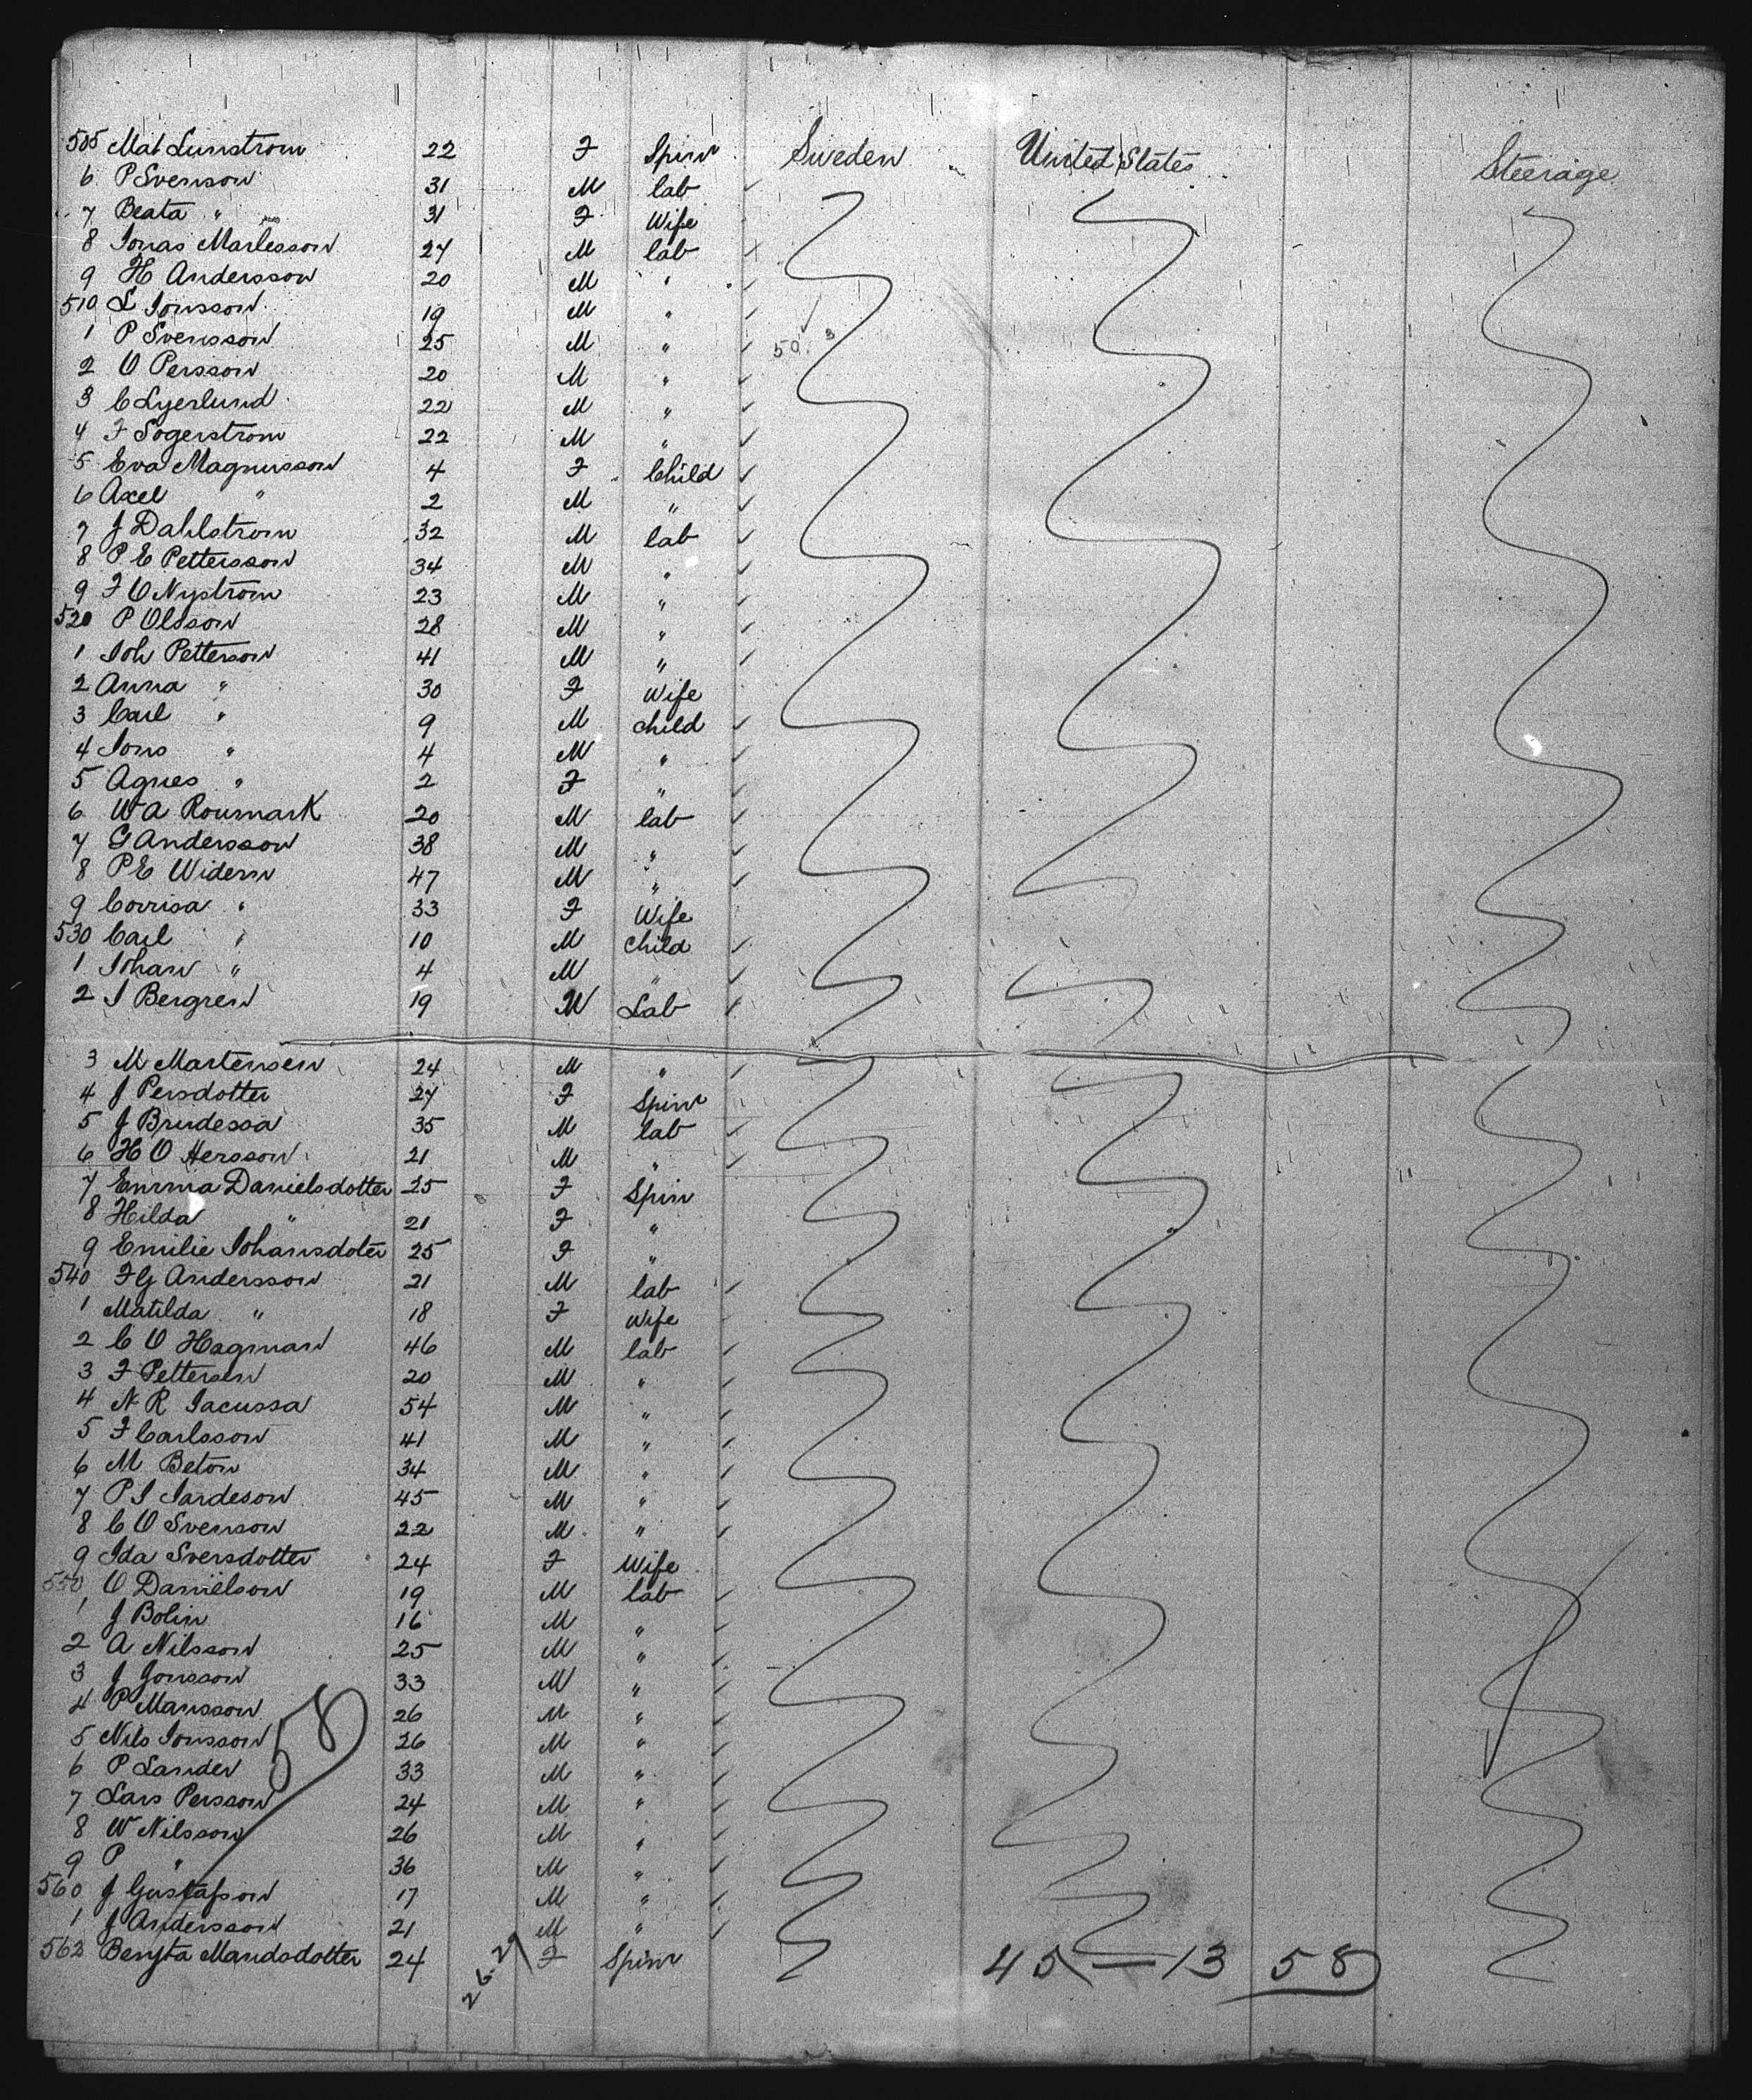 505 Mat Lunstrom 22 F Spin Sweden United States Steerage
6 P Svenson 31 M lab
7 Beata " 31 F Wife
8 Jonas Marlesson 27 M lab
9 H Andersson 20 M "
510 L Jonsson 19 M "
1 P Svensson 25 M "
2 O Persson 20 M "
3 C Lyerlund 22 M "
4 F Sogerstrom 22 M "
5 Eva Magnusson 4 F Child
6 Axel " 2 M "
7 J Dahlstrom 32 M lab
8 P E Pettersson 34 M "
9 F O Nystrom 23 M "
520 P Olsson 28 M "
1 Joh Petterson 41 M "
2 Anna " 30 F Wife
3 Carl " 9 M child
4 Jons " 4 M "
5 Agnes " 2 F "
6 W A Roumark 20 M lab
7 G Andersson 38 M "
8 P E Widern 47 M "
9 Corrisa " 33 F Wife
530 Carl " 10 M child
1 Johan " 4 M "
2 J Bergren 19 M Lab
3 M Martensen 24 M "
4 J Persdotter 27 F Spin
5 J Brudessa 35 M lab
6 H O Hersson 21 M "
7 Emma Danielsdotter 25 F Spin
8 Hilda " 21 F "
9 Emilie Johansdoter 25 F "
540 F G Andersson 21 M lab
1 Matilda " 18 F Wife
2 C O Hagman 46 M lab
3 F Pettersen 20 M "
4 N R Jacussa 54 M "
5 F Carlsson 41 M "
6 M Beton 34 M "
7 P J Jardeson 45 M "
8 C O Svenson 22 M "
9 Ida Sversdotter 24 F Wife
550 O Danielson 19 M lab
1 J Bolin 16 M "
2 A Nilsson 25 M "
3 J Jonsson 33 M "
4 P Mansson 26 M "
5 Nils Jonsson 26 M "
6 P Lander 33 M "
7 Lars Persson 24 M "
8 W Nilsson 26 M "
9 P " 36 M "
560 J Gustafson 17 M "
1 J Andersson 21 M "
562 Bengta Mandsdotter 24 F Spin
58
45 — 13 58